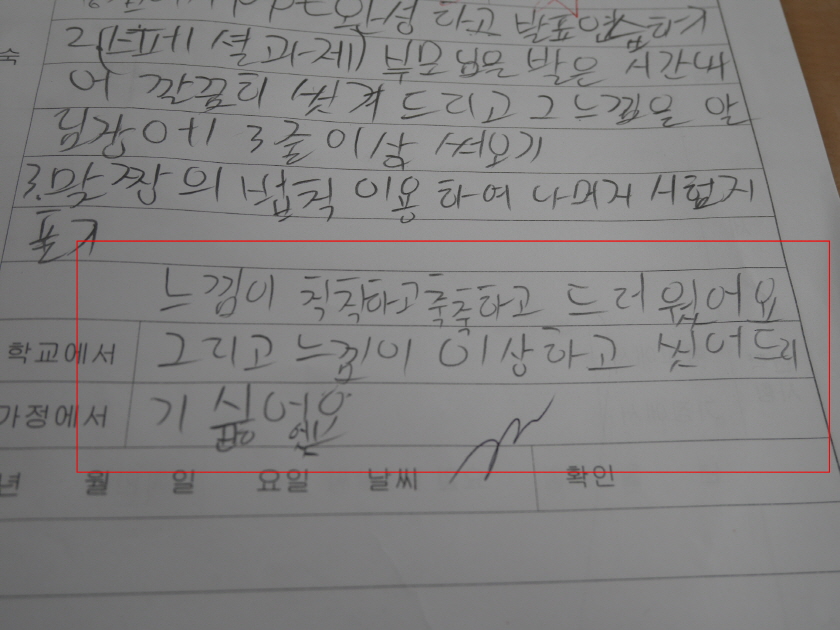 완성 하고 발표연습하기
숙
2(스페셜 과제) 부모님은 발은 시간내
어 깔끔히 씻겨 드리고 그 느낌을 알
림장에 3줄이상 써오기
3.말짱의 법칙 이용하여 나머지 시험지
풀기
느낌이 척척하고축축하고 드러웠어요
학교에서 그리고 느낌이 이상하고 씻어드리
가정에서 기 싫어요
년 월 일 요일 날씨 확인